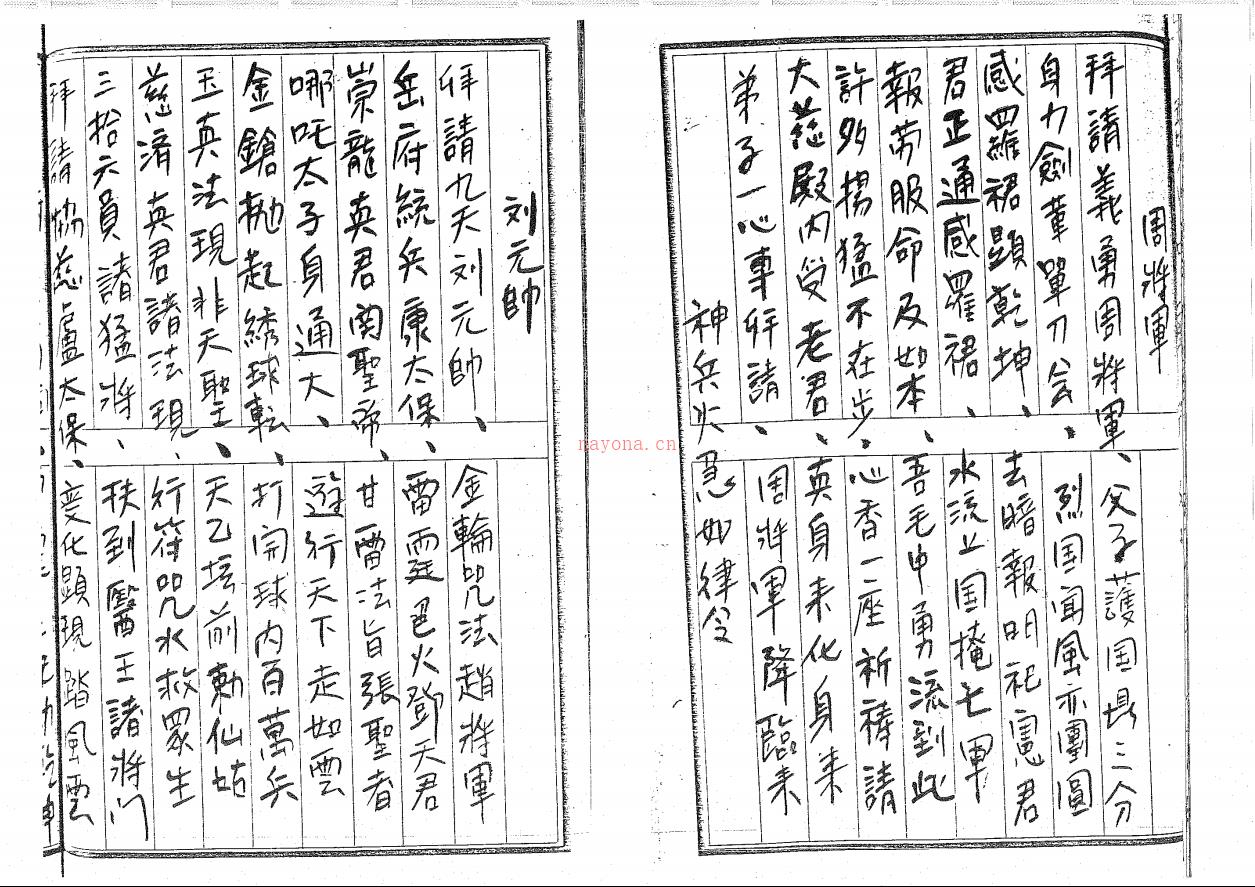 周將軍
拜請義勇周將軍、父子護国鼎三分
身力劍葦單刀会、烈国闻風亦團圓
感四維裙顕乾坤、去暗報明祀憲君
君正通感羅裙、水流止国掩七軍
報劳服命及如本、吾毛申勇流到此
許多揚猛不在步、心香一座祈禱請
大慈殿内受老君、英身来化身来
弟子一心專拜請、周將軍降臨来
神兵火急如律令
刘元帥
拜請九天刘元帥、金輪咒法趙將軍
岳府統兵康太保、雷霆邑火鄧天君
崇龍真君関聖帝、甘雷法旨張聖者
哪吒太子身通大、遊行天下走如雲
金鎗抛起綉球転、打開球内百萬兵
玉真法現非天聖、天乙坛前勅仙姑
慈濟真君諸法現、行符咒水救眾生
三拾六員諸猛將、扶到醫王諸將门
拜請協慈盧太保、变化顕現踏風雲
nayona.cn